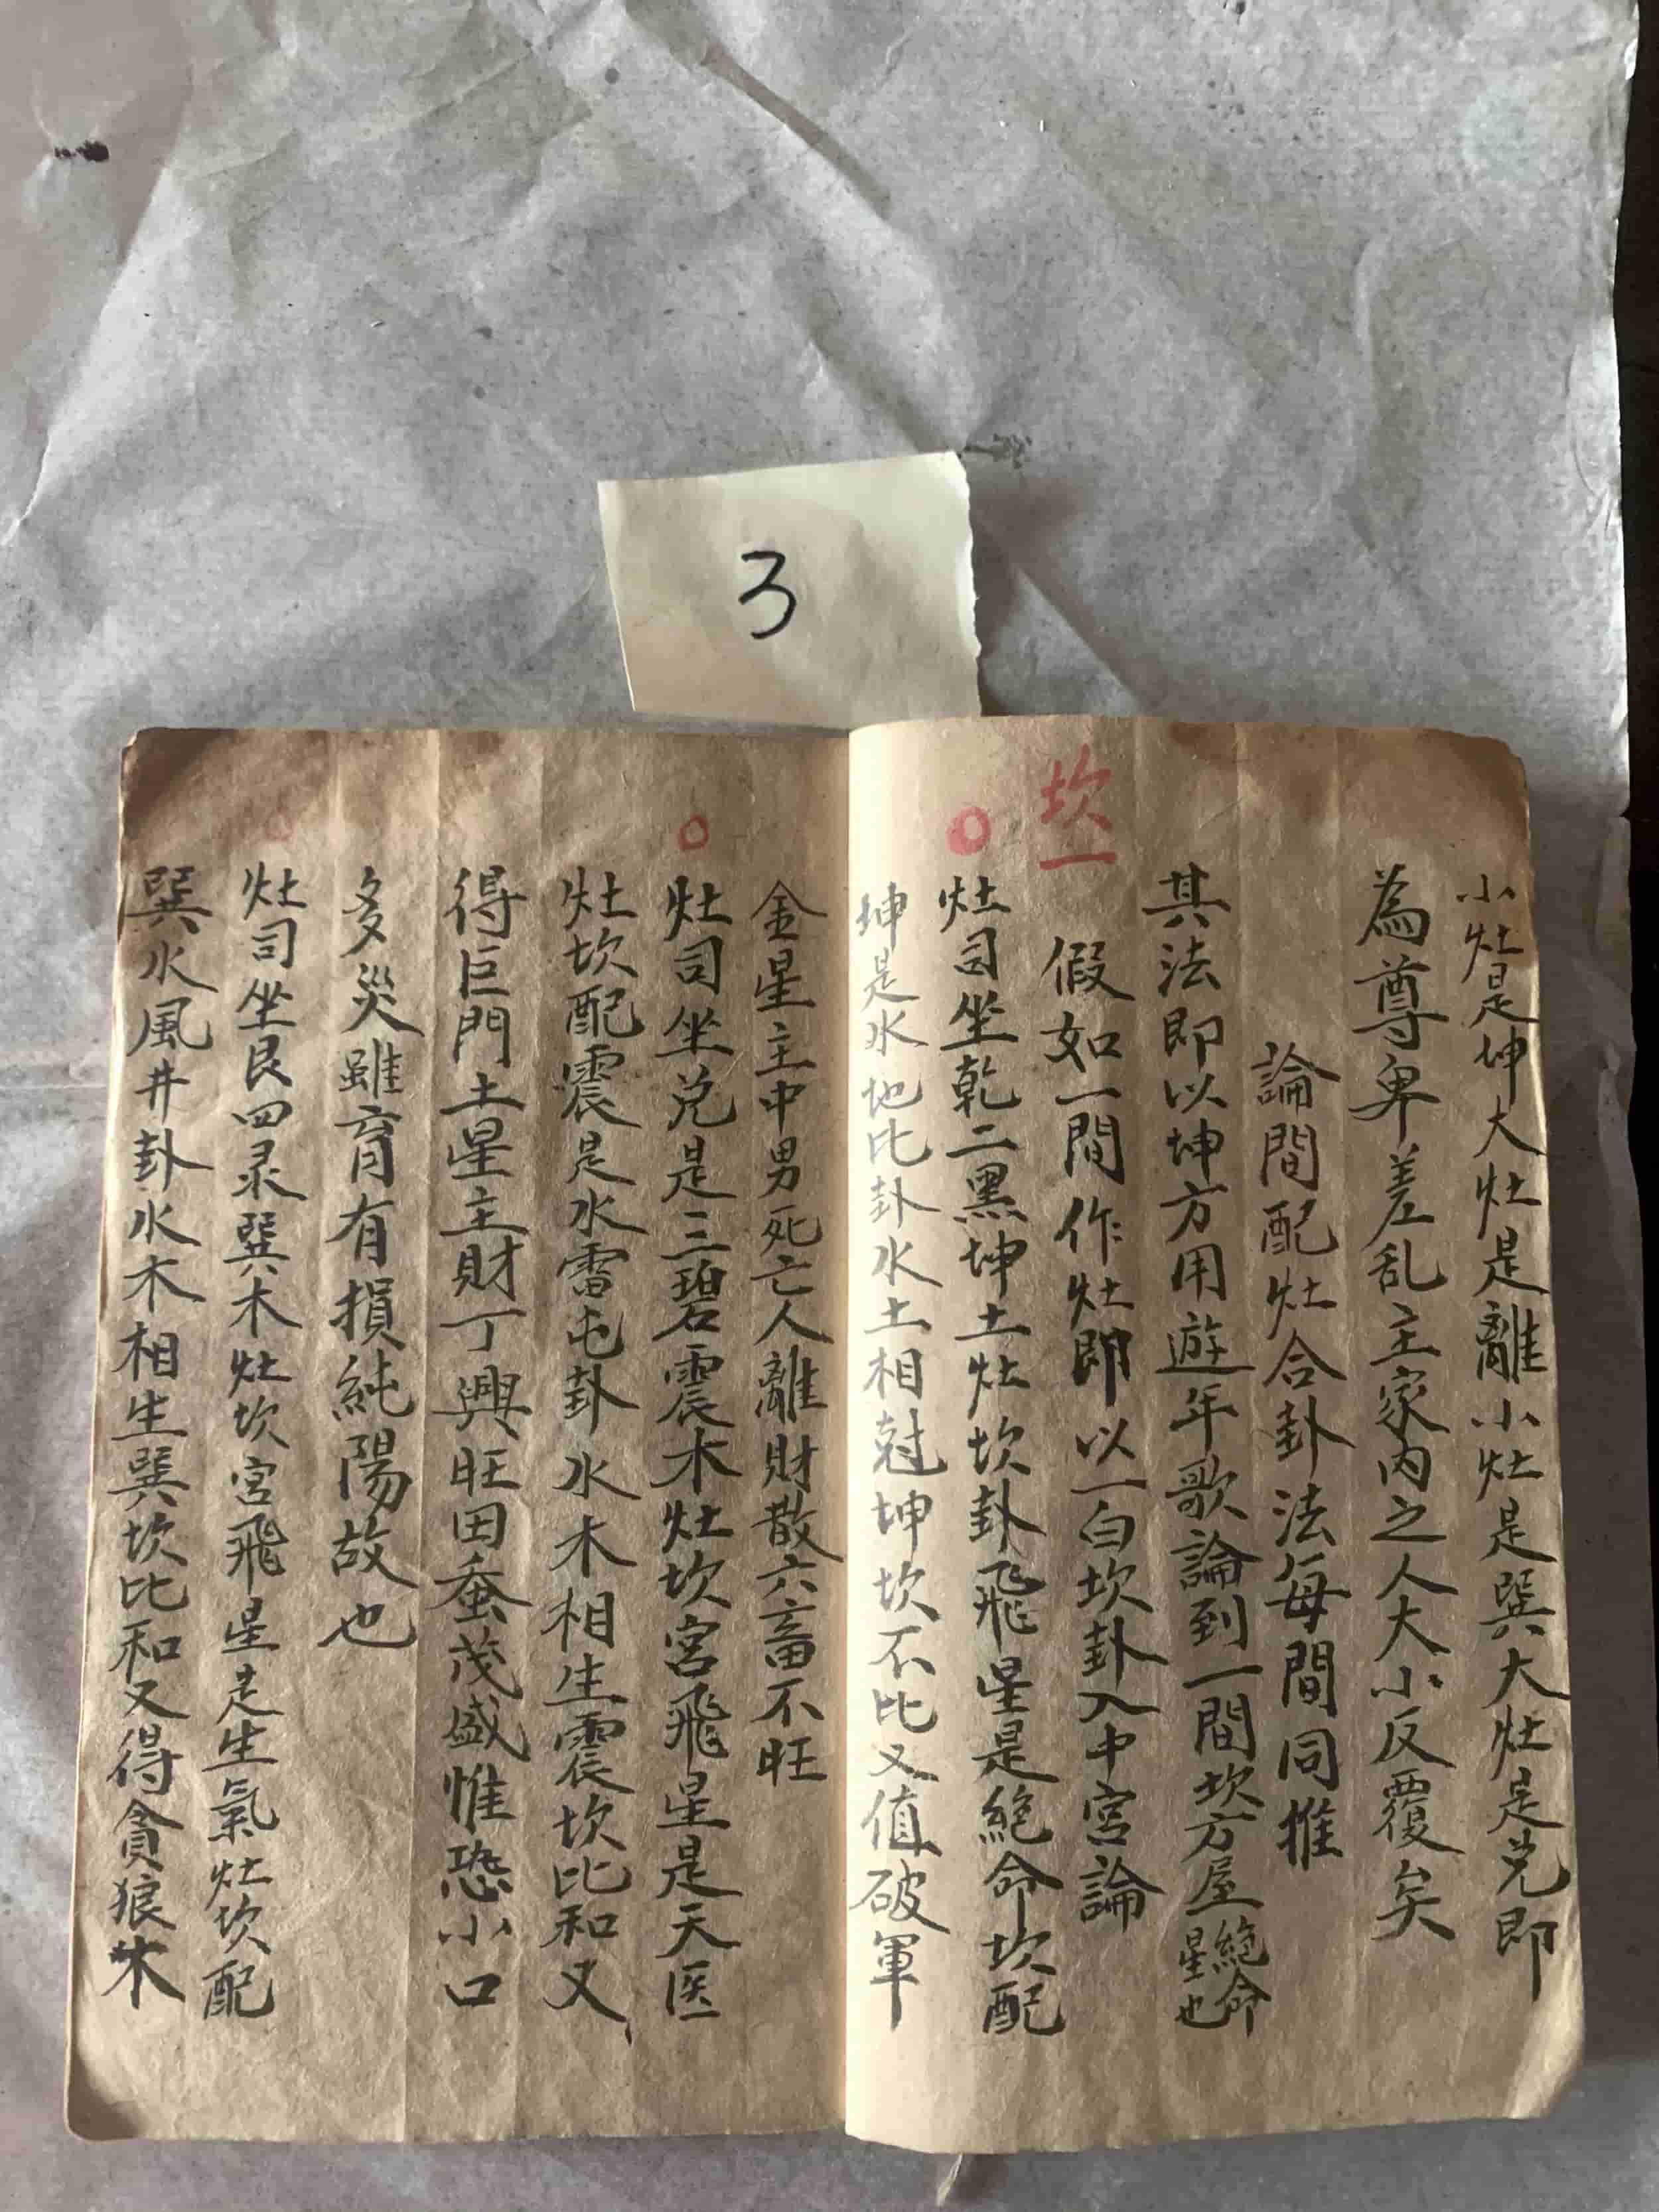 3
小灶是坤大灶是離小灶是巽大灶是兑即
為尊卑差乱主家内之人大小反覆矣
論間配灶合卦法每間同推
其法即以坤方用遊年歌論到一間坎方屋絕命星也
坎一
假如一間作灶即以一白坎卦入中宮論
○灶司坐乾二黑坤土灶坎卦飛星是絕命坎配
坤是水地比卦水土相尅坤坎不比又值破軍
金星主中男死亡人離財散六畜不旺
○灶司坐兑是三碧震木灶坎宮飛星是天医
灶坎配震是水雷屯卦水木相生震坎比和又
得巨門土星主財丁興旺田蚕茂盛惟恐小口
多災雖育有損純陽故也
○灶司坐艮四录巽木灶坎宮飛星是生氣灶坎配
巽水風井卦水木相生巽坎比和又得貪狼木